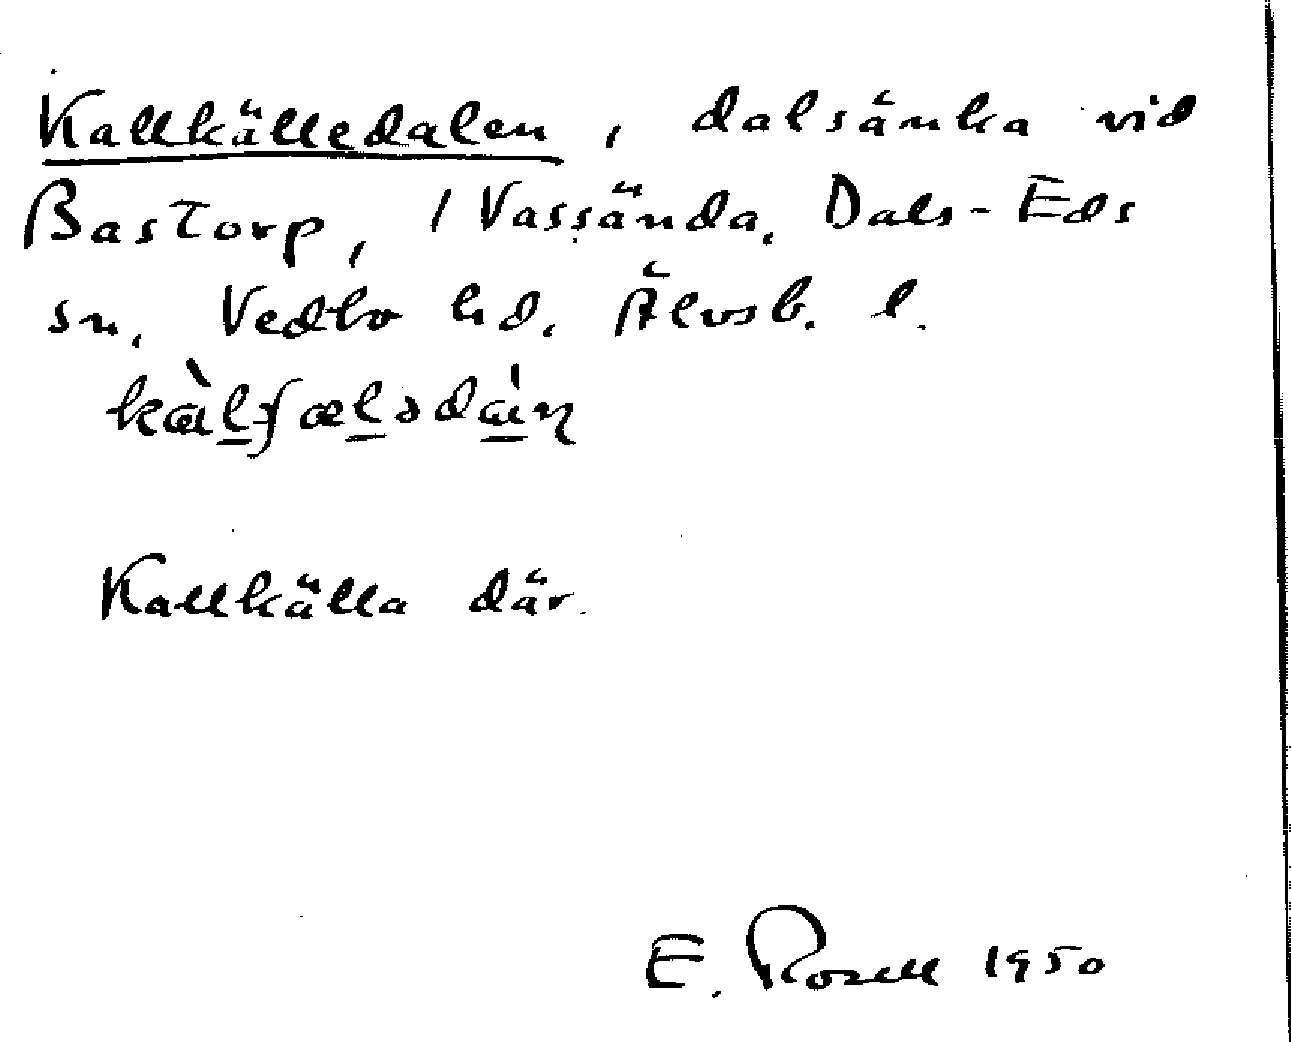 Kallkälledalen, dalsänka vid
Bastorp, i Vassända, Dals-Eds
sn, Vedbo hd. Älvsb. l.
Kallkälla där.
E. Rosell 1950